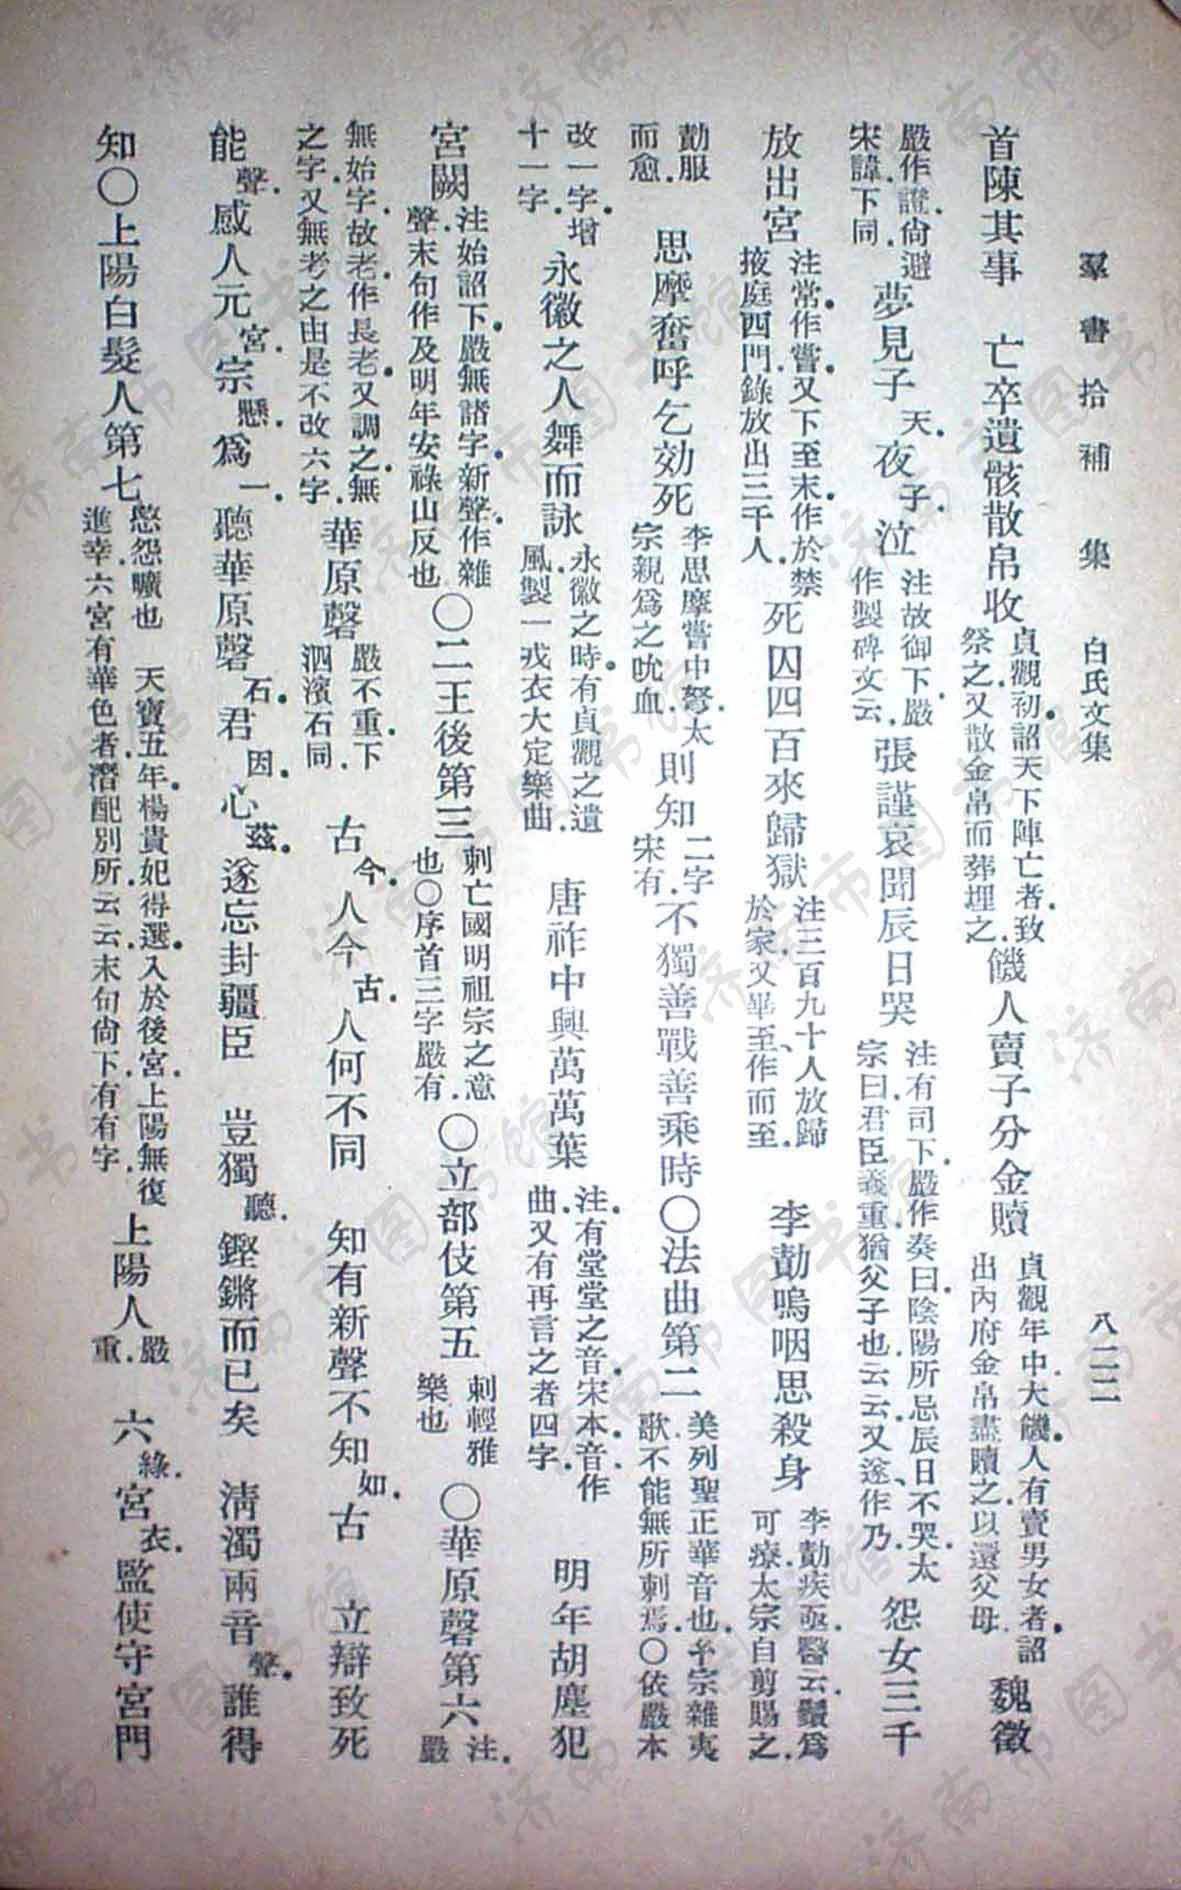 羣書拾補集 白氏文集 八二二
首陳其事 亡卒遺骸散帛收 貞觀初詔天下陣亡者致祭之又散金帛而葬埋之 饑人賣子分金贖 貞觀年中大饑人有賣男女者詔出內府金帛盡贖之以還父母 魏徵
嚴作證尙避宋諱下同 夢見子天夜子泣 注故御下嚴作製碑文云 張謹哀聞辰日哭 注有司下嚴作奏曰陰陽所忌辰日不哭太宗曰君臣義重猶父子也云云又遂作乃 怨女三千
放出宮 注常作嘗又下至末作於禁掖庭四門錄放出三千人 死囚四百來歸獄 注三百九十人放歸於家又畢至作而至 李勣嗚咽思殺身 李勣疾亟醫云鬚爲可療太宗自剪賜之
勣服而愈 思摩奮呼乞効死 李思摩嘗中弩太宗親爲之吮血 則知 二字宋有 不獨善戰善乘時〇法曲第二 美列聖正華音也玄宗雜夷歌不能無所刺焉〇依嚴本
改一字增十一字 永徽之人舞而詠 永徽之時有貞觀之遺風製一戎衣大定樂曲 唐祚中興萬萬葉 注有堂堂之音宋本音作曲又有再言之者四字 明年胡塵犯
宮闕 注始詔下嚴無諸字新聲作雜聲末句作及明年安祿山反也 〇二王後第三 刺亡國明祖宗之意也〇序首三字嚴有 〇立部伎第五 刺輕雅樂也 〇華原磬第六 注嚴
無始字故老作長老又調之無之字又無考之由是不改六字 華原磬 嚴不重下泗濱石同 古今人今古人何不同 知有新聲不知如古 立辯致死
能聲感人元宮宗懸爲一聽華原磬石君因心茲遂忘封疆臣 豈獨聽鏗鏘而已矣 淸濁兩音聲誰得
知〇上陽白髮人第七 愍怨曠也 天寶五年楊貴妃得選入於後宮上陽無復進幸六宮有華色者潛配別所云云末句尙下有有字 上陽人 嚴重 六綠宮衣監使守宮門